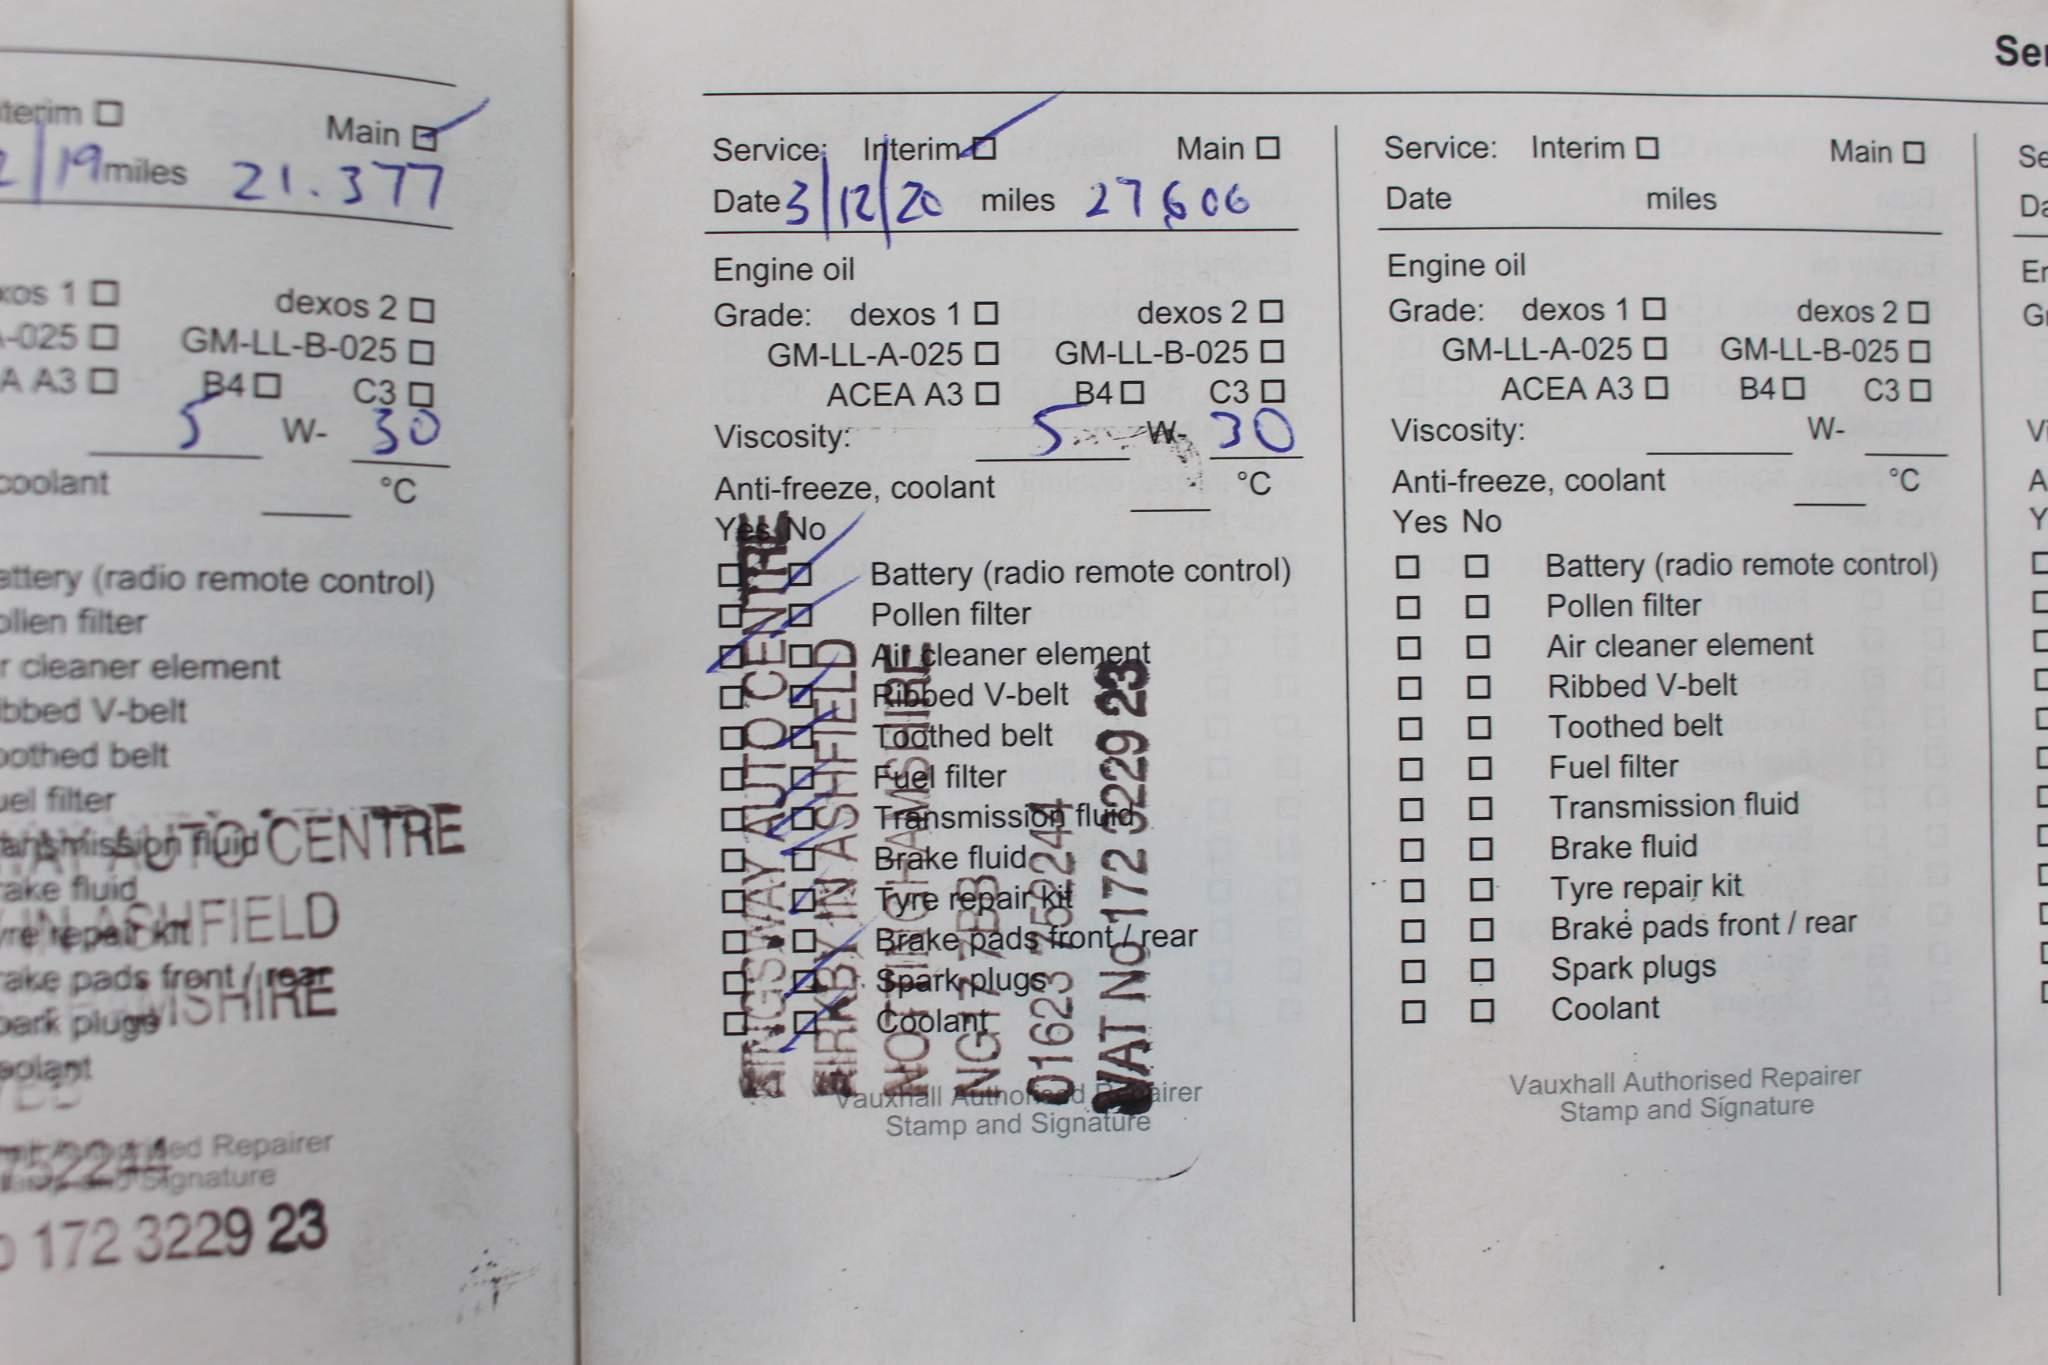 Interim ☐ Main ☑
/19 miles 21.377
dexos 1 ☐ dexos 2 ☐
A-025 ☐ GM-LL-B-025 ☐
A3 ☐ B4 ☐ C3 ☐
5 W- 30
coolant °C
Battery (radio remote control)
Pollen filter
Air cleaner element
Ribbed V-belt
Toothed belt
Fuel filter
Transmission fluid
Brake fluid
Tyre repair kit
Brake pads front / rear
Spark plugs
Coolant
AUTO CENTRE
IN ASHFIELD
752244
172 3229 23
Authorised Repairer
Stamp and Signature
Ser
Service: Interim ☑ Main ☐
Date 3/12/20 miles 27606
Engine oil
Grade: dexos 1 ☐ dexos 2 ☐
GM-LL-A-025 ☐ GM-LL-B-025 ☐
ACEA A3 ☐ B4 ☐ C3 ☐
Viscosity: 5 W- 30
Anti-freeze, coolant °C
Yes No
Battery (radio remote control)
Pollen filter
Air cleaner element
Ribbed V-belt
Toothed belt
Fuel filter
Transmission fluid
Brake fluid
Tyre repair kit
Brake pads front / rear
Spark plugs
Coolant
KINGSWAY AUTO CENTRE
KIRKBY IN ASHFIELD
NOTTINGHAMSHIRE
NG17 7BB
01623 752244
VAT No 172 3229 23
Vauxhall Authorised Repairer
Stamp and Signature
Service: Interim ☐ Main ☐
Date miles
Engine oil
Grade: dexos 1 ☐ dexos 2 ☐
GM-LL-A-025 ☐ GM-LL-B-025 ☐
ACEA A3 ☐ B4 ☐ C3 ☐
Viscosity: W-
Anti-freeze, coolant °C
Yes No
☐ ☐ Battery (radio remote control)
☐ ☐ Pollen filter
☐ ☐ Air cleaner element
☐ ☐ Ribbed V-belt
☐ ☐ Toothed belt
☐ ☐ Fuel filter
☐ ☐ Transmission fluid
☐ ☐ Brake fluid
☐ ☐ Tyre repair kit
☐ ☐ Brake pads front / rear
☐ ☐ Spark plugs
☐ ☐ Coolant
Vauxhall Authorised Repairer
Stamp and Signature